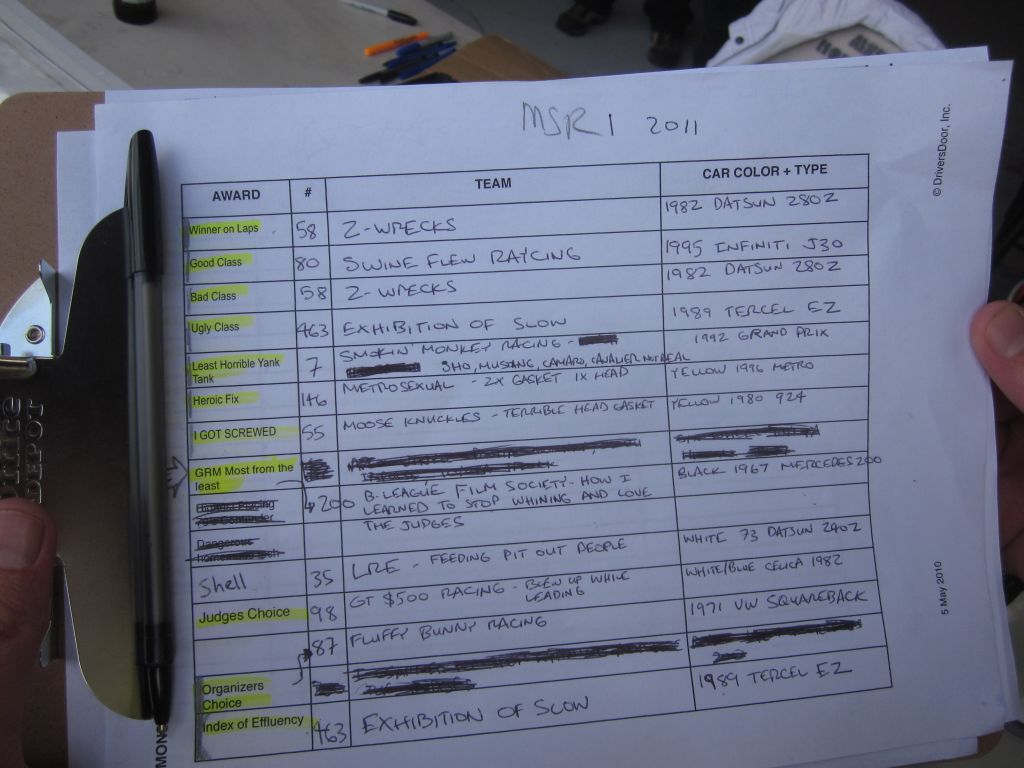 MSR 1 2011
© DriversDoor, Inc.
5 May 2010
AWARD # TEAM CAR COLOR + TYPE
Winner on Laps 58 Z-WRECKS 1982 DATSUN 280Z
Good Class 80 SWINE FLEW RAYCING 1995 INFINITI J30
Bad Class 58 Z-WRECKS 1982 DATSUN 280Z
Ugly Class 463 EXHIBITION OF SLOW 1989 TERCEL EZ
Least Horrible Yank Tank 7 SMOKIN' MONKEY RACING - 1992 GRAND PRIX
SHO, MUSTANG, CAMARO, CAVALIER NOT REAL
Heroic Fix 146 METROSEXUAL - 2X GASKET 1X HEAD YELLOW 1996 METRO
I GOT SCREWED 55 MOOSE KNUCKLES - TERRIBLE HEAD GASKET YELLOW 1980 924
GRM Most from the
least
200 B-LEAGUE FILM SOCIETY - HOW I BLACK 1967 MERCEDES 200
LEARNED TO STOP WHINING AND LOVE
THE JUDGES
Dangerous
homemade tech
Shell 35 LRE - FEEDING PIT OUT PEOPLE WHITE 73 DATSUN 240Z
Judges Choice 98 GT $500 RACING - BLEW UP WHILE WHITE/BLUE CELICA 1982
LEADING
87 FLUFFY BUNNY RACING 1971 VW SQUAREBACK
Organizers
Choice
Index of Effluency 463 EXHIBITION OF SLOW 1989 TERCEL EZ
Office
DEPOT
MON